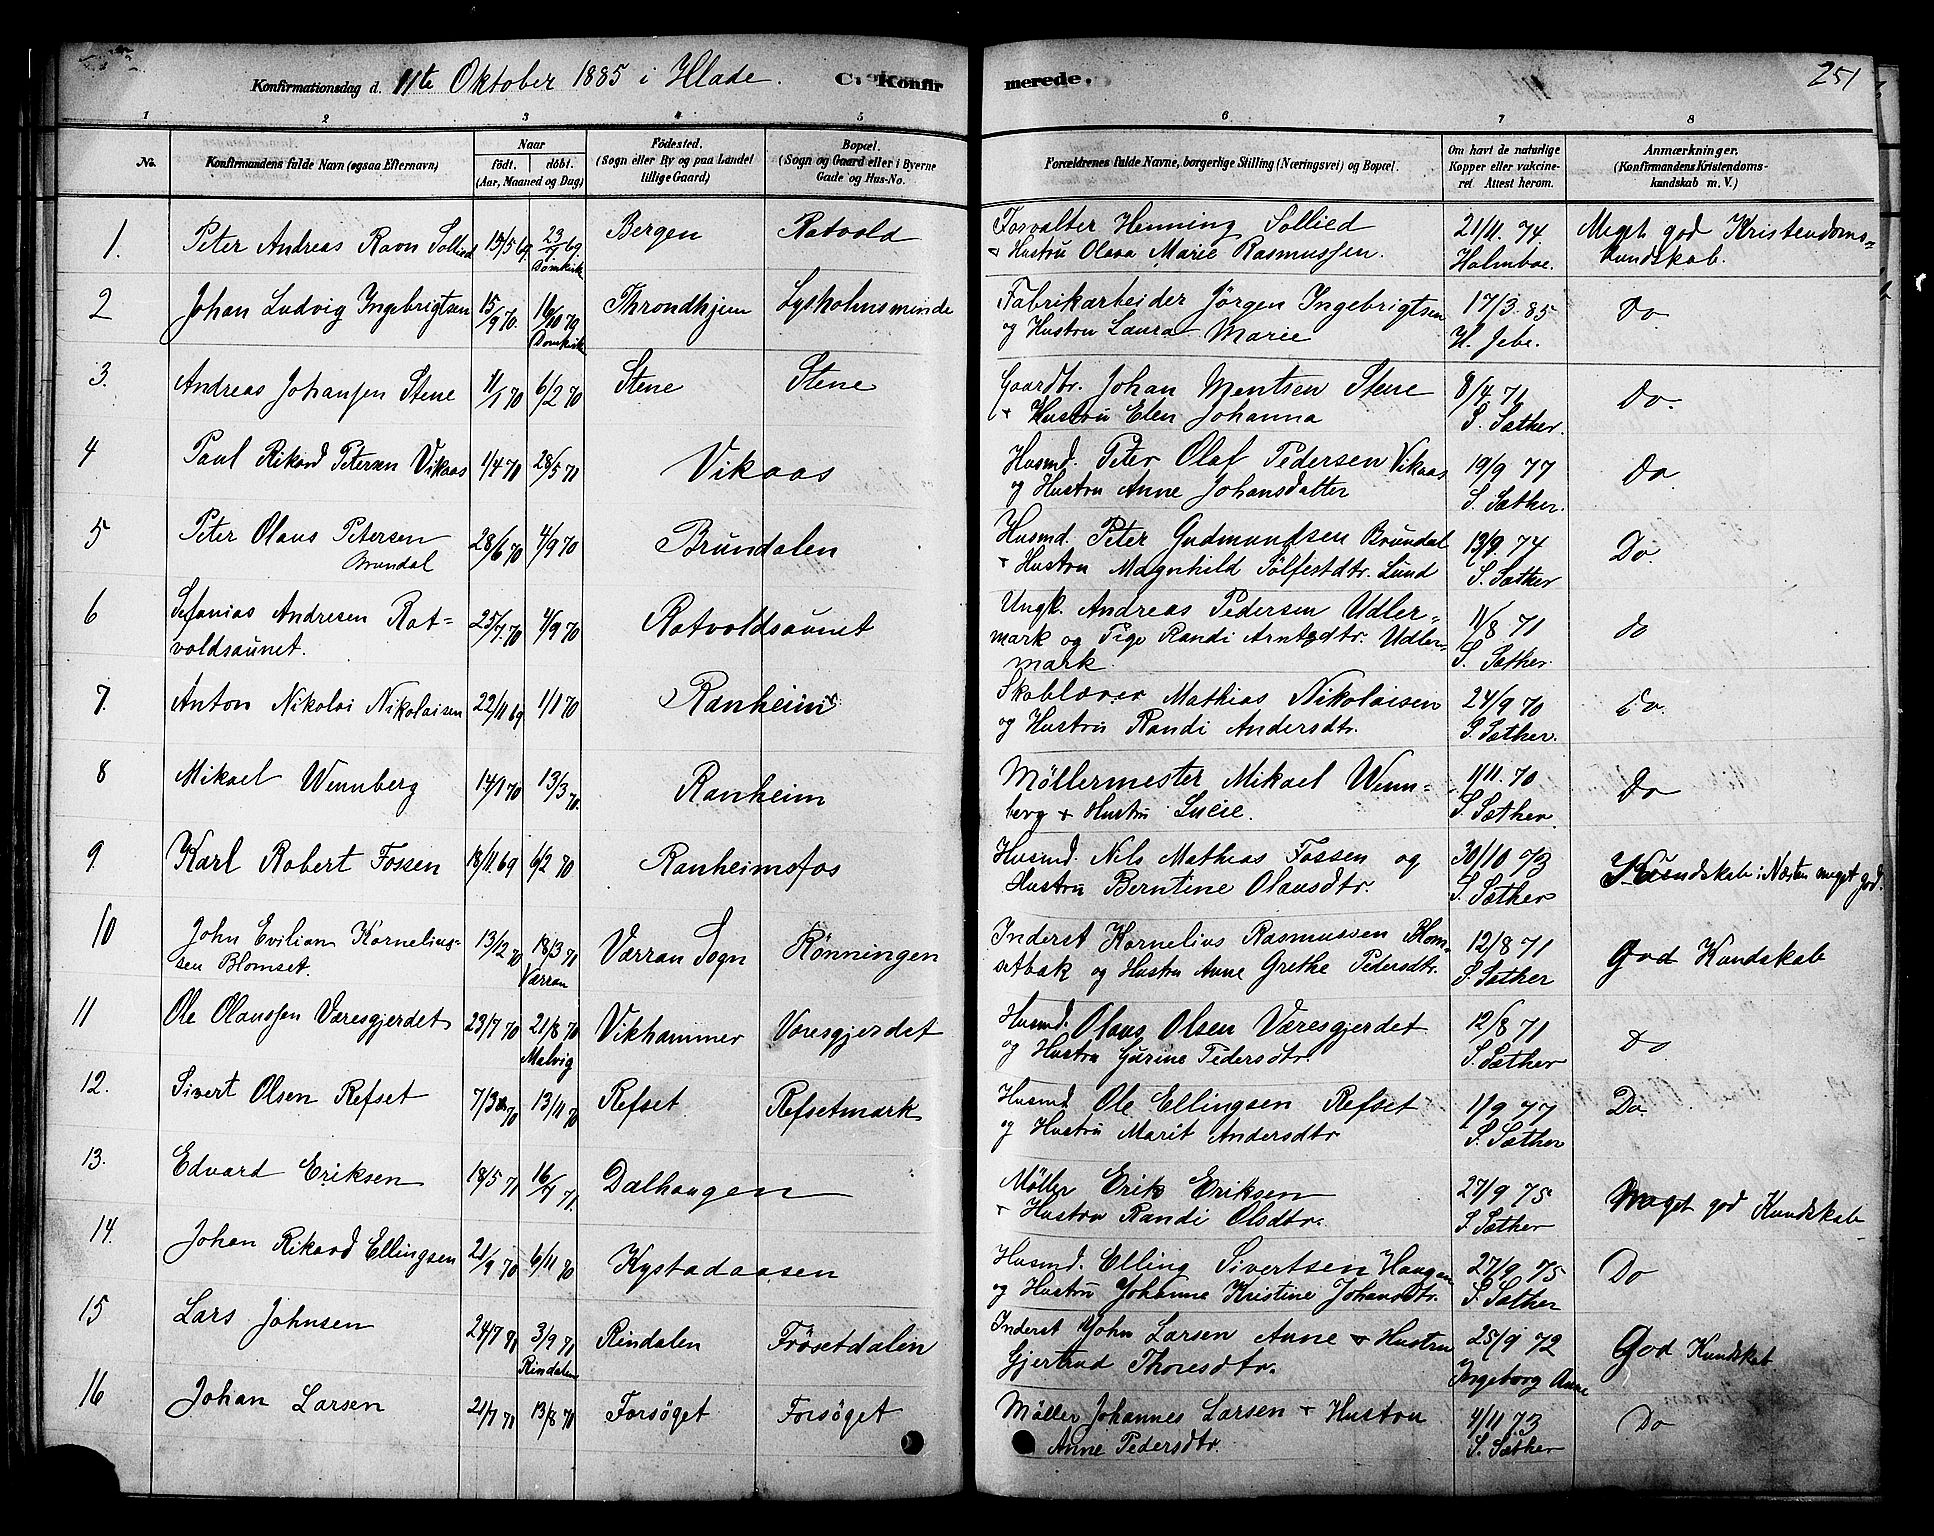 Konfirmationsdag d. 11te Oktober 1885 i Hlade. C. Konfirmerede. 251
1 2 3 4 5 6 7 8
No. Konfirmandens fulde Navn (ogsaa Efternavn) Naar født. døbt. (Aar, Maaned og Dag) Fødested. (Sogn eller By og paa Landet tillige Gaard) Bopæl. (Sogn og Gaard eller i Byerne Gade og Hus-No. Forældrenes fulde Navne, borgerlige Stilling (Næringsvei) og Bopæl. Om havt de naturlige Kopper eller vakcineret Attest herom. Anmærkninger. (Konfirmandens Kristendomskundskab m. V.)
1. Peter Andreas Ravn Sollied 15/5 69. 23/9 69. Domkirk Bergen Rotvold Forvalter Henning Sollied 21/11 74. Meget god Kristendoms-
+ Hustru Olava Marie Rasmussen. Holmboe. kundskab.
2 Johan Ludvig Ingebrigtsen 15/9 70. 16/10 70 Domkirk Throndhjem Lysholmsminde Fabrikarbeider Jörgen Ingebrigtsen 17/3. 85 Do.
og Hustru Laura Marie H. Jebe.
3. Andreas Johansen Stene 11/1 70 6/2 70 Stene Stene Gaardbr. Johan Mentsen Stene 8/4 71 Do.
+ Hustru Elen Johanna S. Sæther.
4 Paul Rikard Petersen Vikaas 1/4 70 28/5 70 Vikaas Husmd. Peter Olaf Pedersen Vikaas 19/9 77 Do
og Hustru Anne Johansdatter S. Sæther.
5 Peter Olaus Petersen Brundal 28/6 70 4/9 70 Brundalen Husmd. Peter Gudmundsen Brundal 13/9. 74 Do.
+ Hustru Magnhild Sölfestdtr. Lund S. Sæther
6 Sefanias Andresen Rot- 25/7. 70 4/9 70 Rotvoldsaunet Ungk. Andreas Pedersen Udler- 11/8 71 do
voldsaunet. mark og Pige Randi Arntsdtr. Udler- S. Sæther.
mark.
7. Anton Nikolai Nikolaisen 22/11 69 1/1 70 Ranheim Skoblærer Mathias Nikolaisen 24/9 70 Do.
og Hustru Randi Andersdtr. S. Sæther.
8 Mikael Wennberg 14/1 70 13/3 70. Ranheim Möllermester Mikael Wenn- 1/11. 70 Do
berg + Hustru Lucie. S. Sæther.
9 Karl Robert Fossen 18/11 69 6/2 70 Ranheimsfos Husmd. Nils Mathias Fossen og 30/10 73 Kundskab: Næsten meget god.
Hustru Berntine Olausdtr. S. Sæther
10 John Evilian Kornelius- 13/12 70 18/3 71 Værran Værran Sogn Rönningen Inderst Kornelius Rasmussen Blom- 12/8 71 God Kundskab
sen Blomset. setbak og Hustru Anne Grethe Pedersdtr. S. Sæther
11 Ole Olaussen Væresgjerdet 23/7 70 21/8 70 Malvig Vikhammer Væresgjerdet Husmd. Olaus Olsen Væresgjerdet 12/8 71 do
og Hustru Gurine Pedersdtr. S. Sæther
12. Sivert Olsen Refset 7/3 70 13/11 70 Refset Refsetmark Husmd Ole Ellingsen Refset 1/9 77 Do
og Hustru Marit Andersdtr S. Sæther
13. Edvard Eriksen 18/5 71 16/7 71. Dalhaugen Möller Erik Eriksen 27/9 75 Meget god Kundskab
+ Hustru Randi Olsdtr. S. Sæther
14. Johan Rikard Ellingsen 21/9 70 6/11 70 Kystadaasen Husmd. Elling Sivertsen Haugen 27/9 75 Do
og Hustru Johanna Kristine Johansdtr. S. Sæther
15 Lars Johnsen 24/7 71 3/9 71 Rindalen Rindalen Frösetdalen Inderst John Larsen Anne + Hustru 25/9 72 God Kundskab
Gjertrud Thoresdtr. Ingeborg Aune
16 Johan Larsen 21/7 70 13/8 70 Forsöget Forsöget Möller Johannes Larsen + Hustru 4/11 73 Do
Anne Pedersdtr. S. Sæther